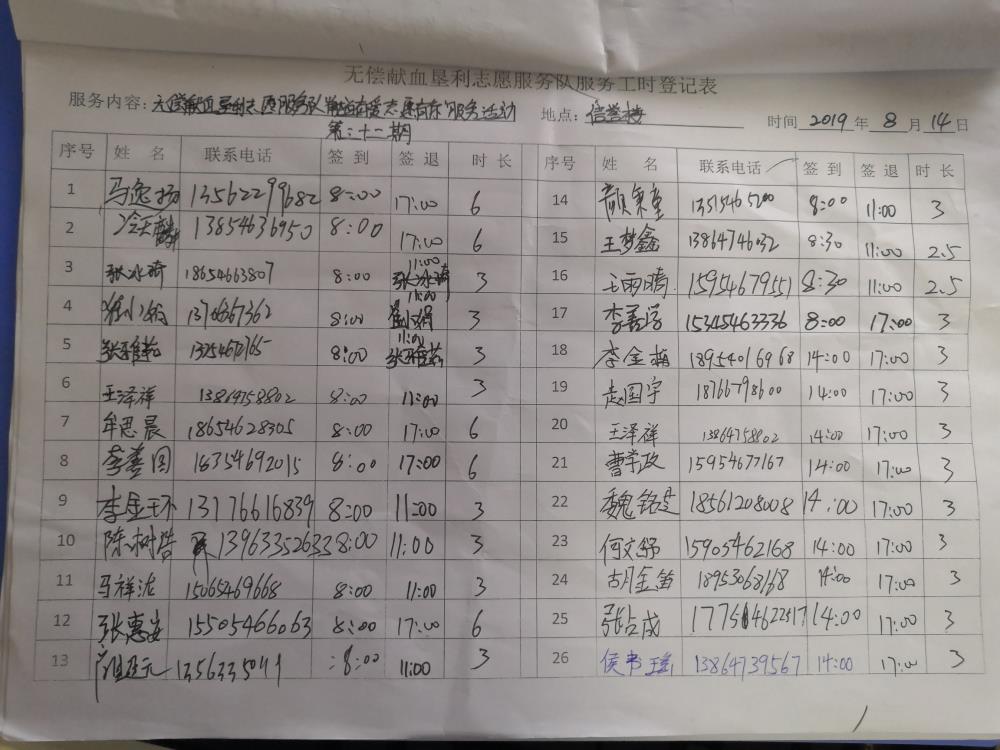 无偿献血垦利志愿服务队服务工时登记表
服务内容：无偿献血垦利志愿服务队 志愿有你服务活动 地点：信誉楼 时间 2019 年 8 月 14 日
第二十一期
序号 姓 名 联系电话 签 到 签 退 时 长 序号 姓 名 联系电话 签 到 签 退 时 长
1 马逸扬 13562299682 8:00 17:00 6 14 颜秉奎 8:00 11:00 3
2 冷天麟 13854636950 8:00 17:00 6 15 王梦鑫 13864746032 8:30 11:00 2.5
3 张冰琦 18654663807 8:00 11:00 张冰琦 3 16 王雨晴 15954679551 8:30 11:00 2.5
4 8:00 11:00 3 17 李善学 15345463336 8:00 17:00 3
5 8:00 11:00 3 18 李金梅 18954016968 14:00 17:00 3
6 王泽祥 8:00 11:00 3 19 赵国宇 18766798600 14:00 17:00 3
7 牟思晨 18654628305 8:00 17:00 6 20 王泽祥 13864758802 14:00 17:00 3
8 李春国 16354692015 8:00 17:00 6 21 曹学政 15954677167 14:00 17:00 3
9 李金环 13176616839 8:00 11:00 3 22 魏铭 18561208008 14:00 17:00 3
10 陈树浩 13963352633 8:00 11:00 3 23 何文舒 15905462168 14:00 17:00 3
11 马祥龙 15065469668 8:00 11:00 3 24 胡金笛 14:00 17:00 3
12 张惠安 15505466063 8:00 17:00 6 25 张占成 14:00 17:00 3
13 8:00 11:00 3 26 侯书瑶 13864739567 14:00 17:00 3